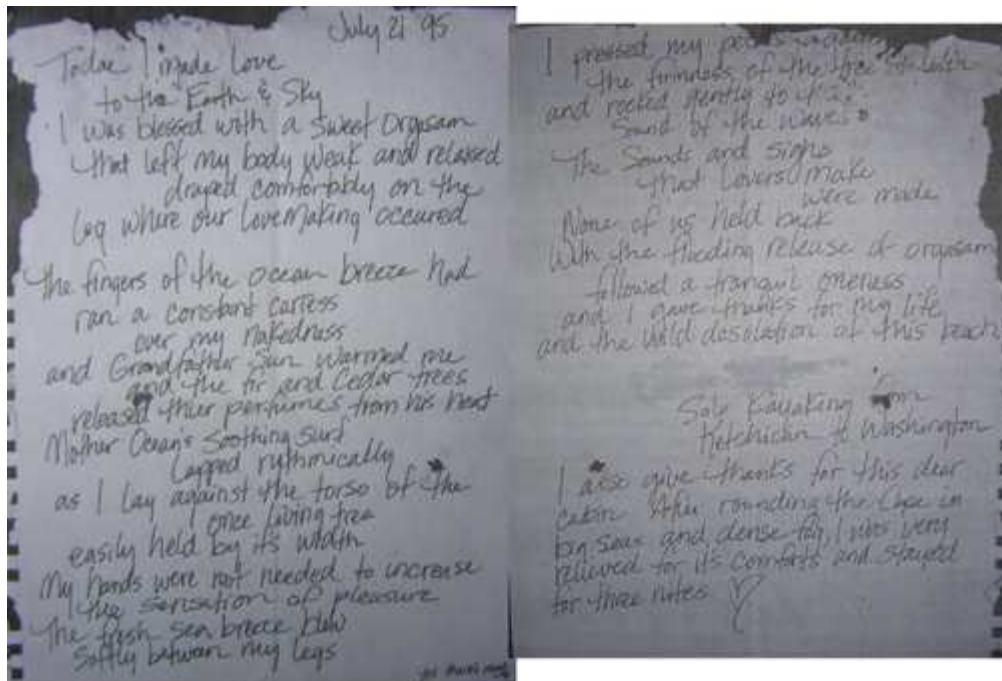 July 21 95
Today I made Love
to the Earth & Sky
I was blessed with a Sweet Orgasam
that left my body weak and relaxed
draped comfortably on the
Log where our lovemaking occured
The fingers of the ocean breeze had
ran a constant carress
over my nakedness
and Grandfather Sun warmed me
and the fir and Cedar trees
released thier perfumes from his heat
Mother Oceans Soothing Surf
Lapped rythmically
as I lay against the torso of the
once living tree
easily held by its width
My hands were not needed to increase
the sensation of pleasure
The fresh sea breeze blew
Softly between my legs
I pressed my against
the firmness of the tree
and rocked gently to the
Sound of the waves
The Sounds and sighs
that Lovers make
were made
None of us held back
With the flooding release of orgasam
followed a tranquil oneness
and I gave thanks for my life
and the wild desolation of this beach
Solo Kayaking from
Ketchican to Washington
I also give thanks for this dear
cabin After rounding the Cape in
big Seas and dense fog, I was very
relieved for its comforts and stayed
for three nites